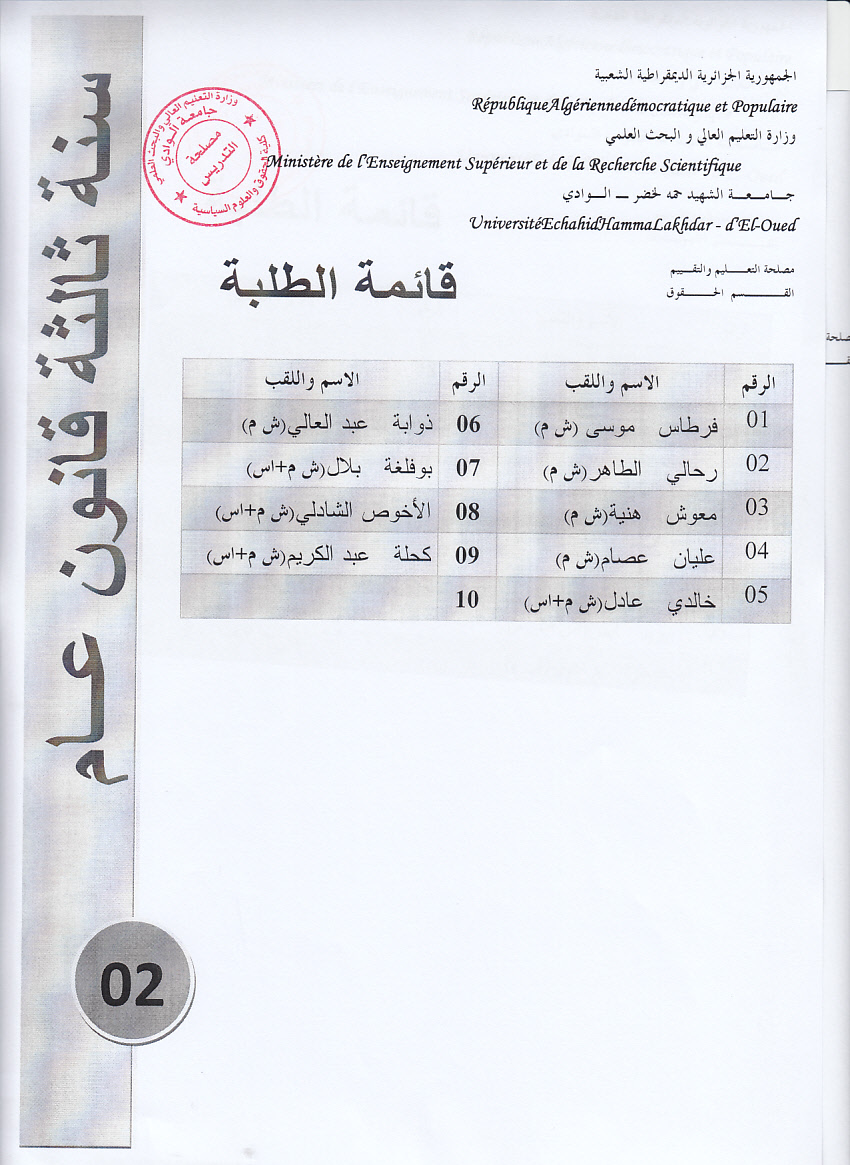 الجمهورية الجزائرية الديمقراطية الشعبية
RépubliqueAlgériennedémocratique et Populaire
وزارة التعليم العالي و البحث العلمي
Ministère de l'Enseignement Supérieur et de la Recherche Scientifique
جامعة الشهيد حمه لخضر – الوادي
UniversitéEchahidHammaLakhdar - d'El-Oued
مصلحة التعليم والتقييم
القسم الحقوق
وزارة التعليم العالي والبحث العلمي
جامعة الوادي
مصلحة
التدريس
كلية الحقوق والعلوم السياسية
قائمة الطلبة
الرقم الاسم واللقب الرقم الاسم واللقب
01 فرطاس موسى (ش م) 06 ذوابة عبد العالي(ش م)
02 رحالي الطاهر(ش م) 07 بوفلغة بلال(ش م+اس)
03 معوش هنية(ش م) 08 الأخوص الشادلي(ش م+اس)
04 عليان عصام(ش م) 09 كحلة عبد الكريم(ش م+اس)
05 خالدي عادل(ش م+اس) 10
سنة ثالثة قانون عام
02